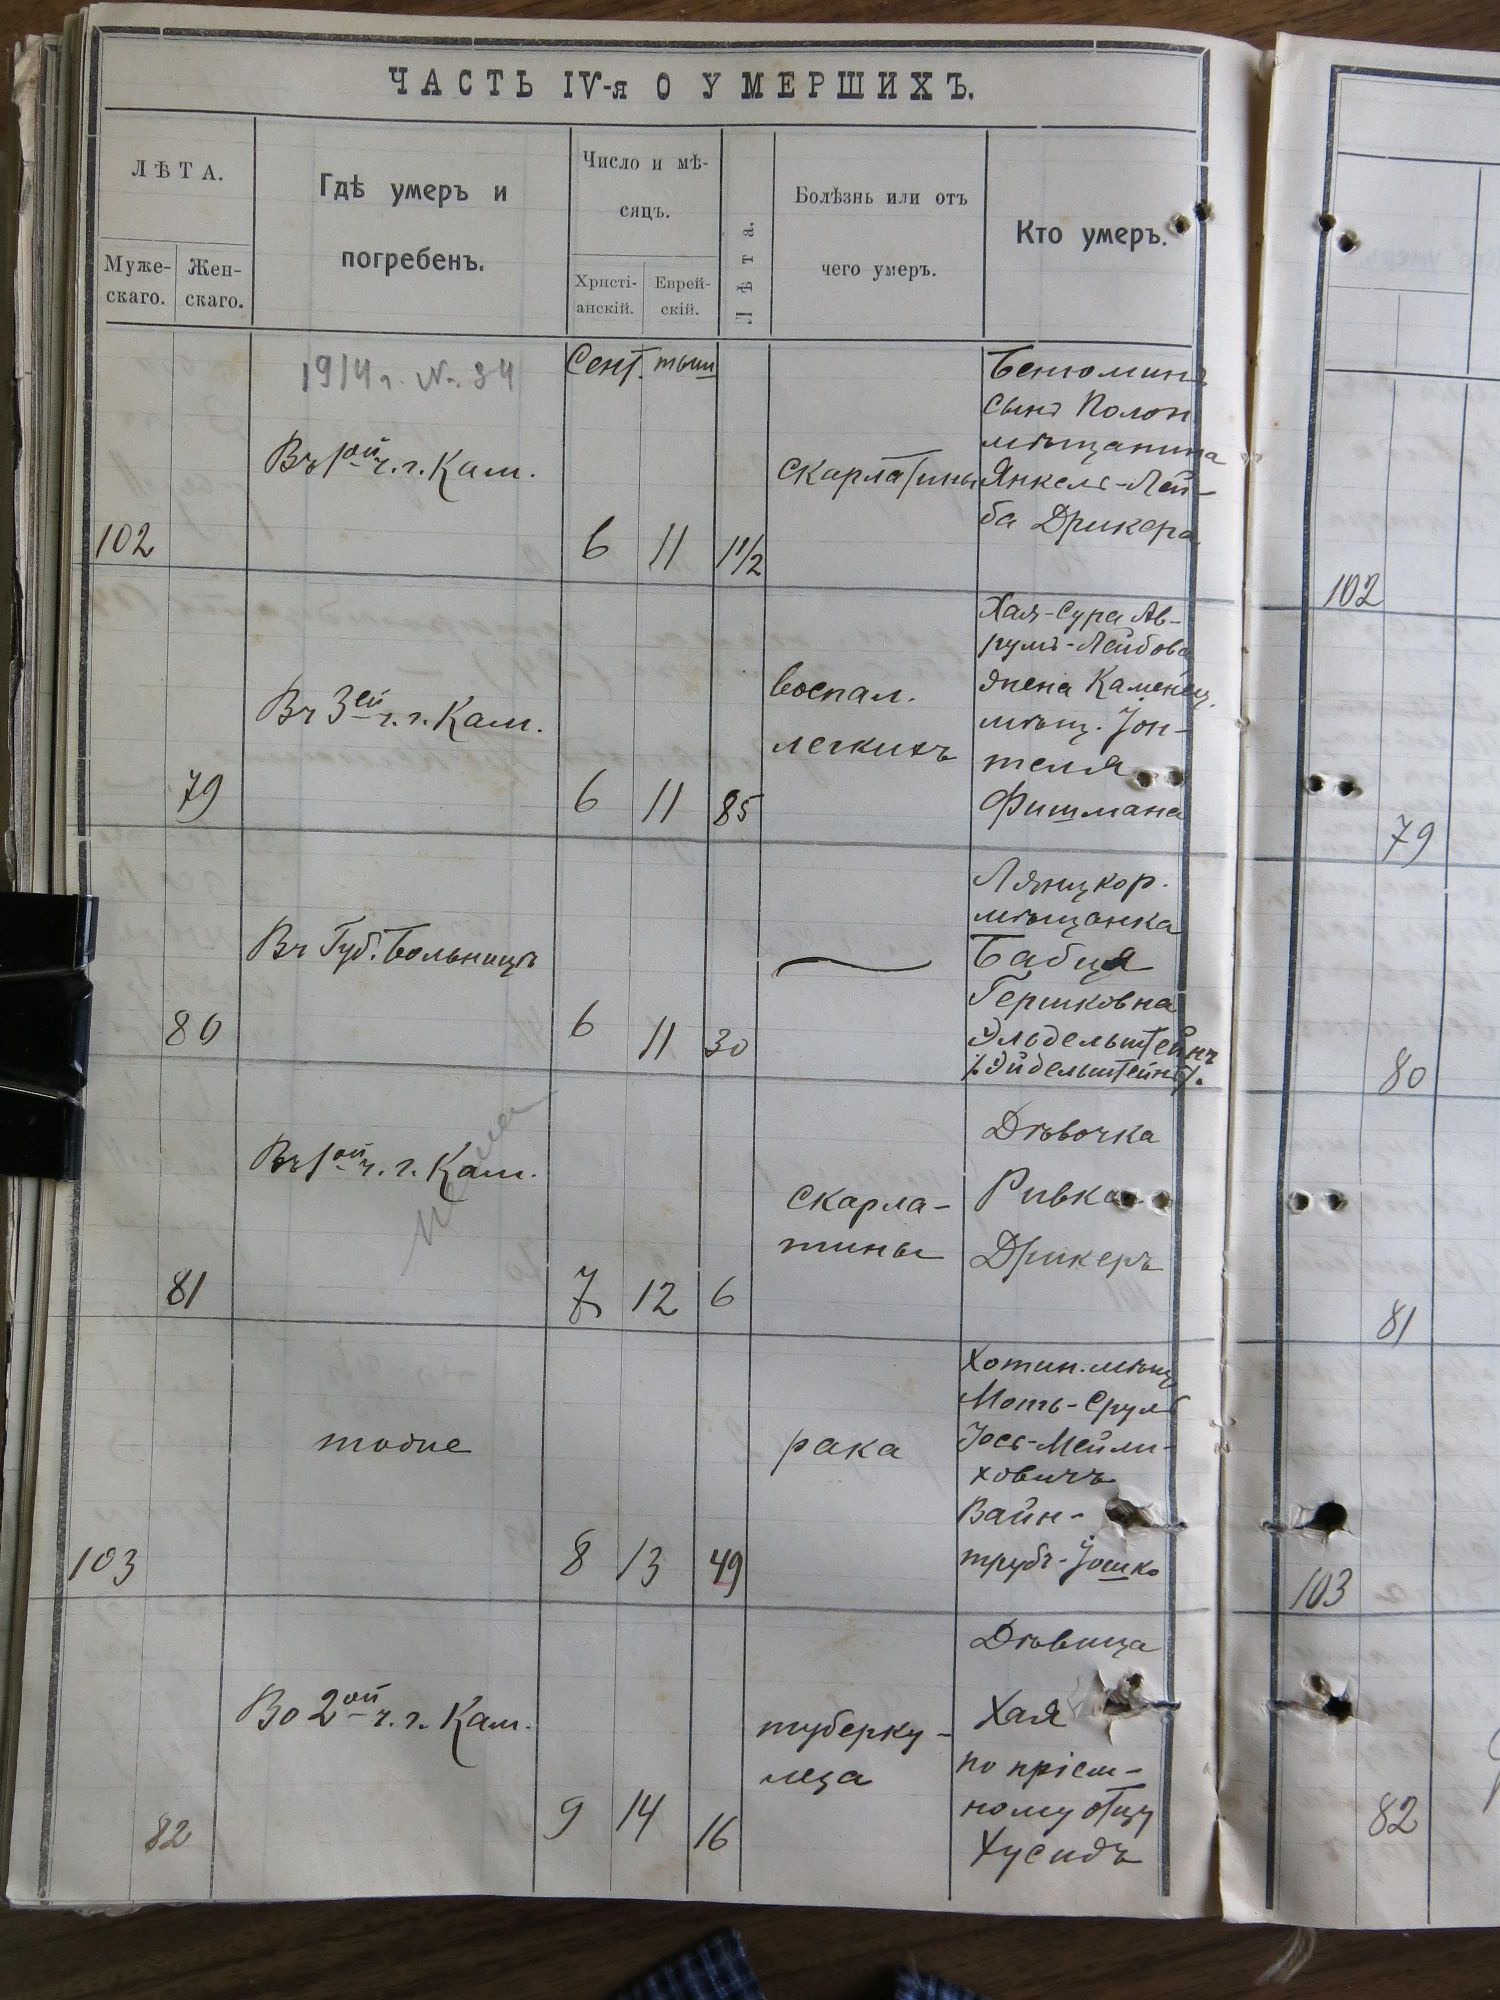 ЧАСТЬ IV-я О УМЕРШИХЪ.
ЛѢТА.
Муже-
скаго.
Жен-
скаго.
Гдѣ умеръ и
погребенъ.
Число и мѣ-
сяцъ.
Христі-
анскій.
Еврей-
скій.
Лѣта.
Болѣзнь или отъ
чего умеръ.
Кто умеръ.
1914 г. №. 34
Сент. тыш
102
Въ 1ой ч. г. Кам.
6
11
1 1/2
скарлатины
Бенюминъ
сынъ Полон
мѣщанина
Янкель-Лей-
ба Дрикера
102
79
Въ 3ей ч. г. Кам.
6
11
85
воспал.
легкихъ
Хая-Сура Ав-
румъ-Лейбова
жена Каменец.
мѣщ. Іон-
теля
Фишмана
79
80
Въ Губ. Больницѣ
6
11
30
Лянцкор.
мѣщанка
Бабця
Гершковна
Эльдельштейнъ
/:Эйдельштейнъ/:
80
81
Въ 1ой ч. г. Кам.
7
12
6
скарла-
тины
Дѣвочка
Ривка
Дрикеръ
81
103
тоже
8
13
49
рака
Хотин. мѣщ
Моть-Сруль
Іось-Мейли-
ховичъ
Вайн-
трубъ-Іошко
103
82
Во 2ой ч. г. Кам.
9
14
16
туберку-
леза
Дѣвица
Хая
по пріем-
ному отцу
Хусидъ
82